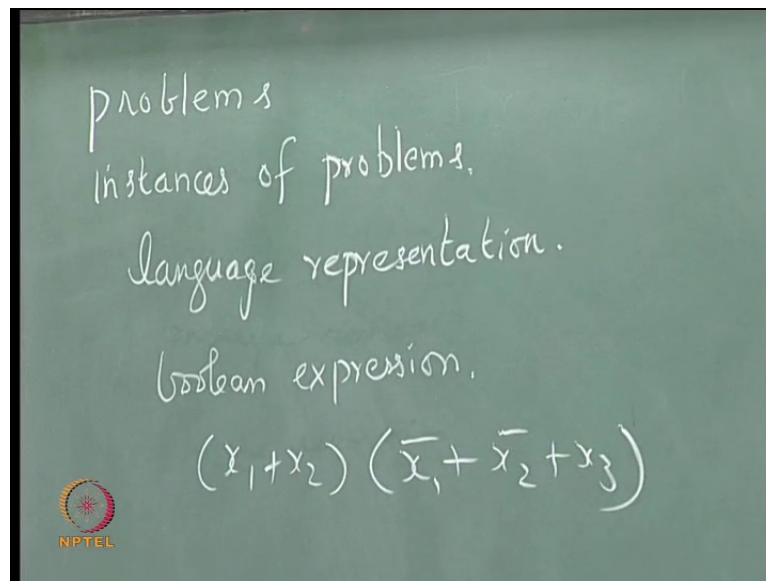 problems
instances of problems.
language representation.
boolean expression.
(x₁+x₂) (x̄₁+x̄₂+x₃)
NPTEL